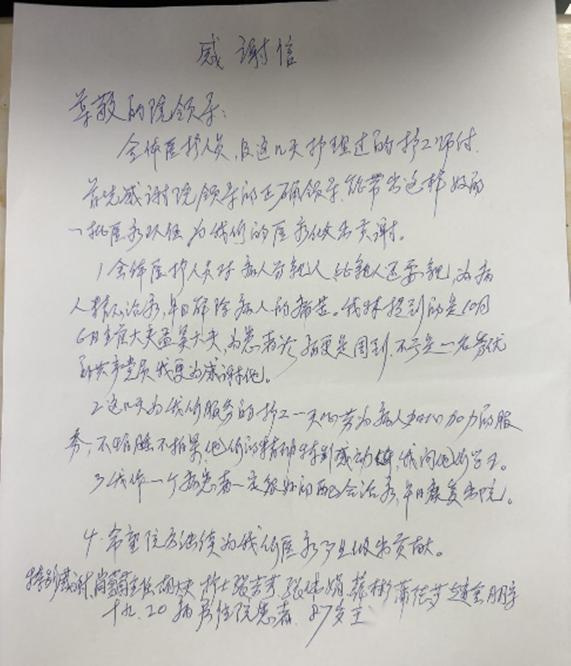 感谢信
尊敬的院领导:
全体医护人员,及这几天护理过的护工师付.
首先感谢院领导的正确领导,能带出这样好的
一批医疗队伍为我们的医疗做出贡谢。
1全体医护人员对病人当亲人,比亲人还要亲,为病
人精心治疗,早日解除病人的痛苦。我特提到的是10月
6日主任大夫孟昊大夫,为患者治病更是周到,不亏是一名
的共产党员我更为感谢他。
2这几天为我们服务的护工一天的劳为病人加心加力的服
务,不怕脏不怕累,他们的精神特别感动,我向他们学习。
3我作一个病患者一定很好的配合治疗,早日康复出院。
4.希望院方继续为我们医疗做出贡献。
特别感谢,主任 护士
十九.20病房住院患者.87岁